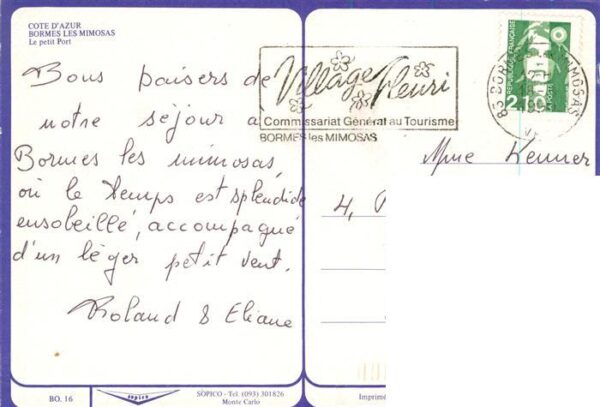 COTE D'AZUR
BORMES LES MIMOSAS
Le petit Port
Bons baisers de
notre séjour à
Bormes les mimosas,
où le temps est splendide
ensoleillé, accompagné
d'un léger petit vent.
Roland & Eliane
Village Fleuri
Commissariat Général au Tourisme
BORMES les MIMOSAS
REPUBLIQUE FRANÇAISE
LA POSTE
83 BORMES MIMOSAS
Mme Kenner
4,
BO. 16
sopico
SOPICO - Tél. (093) 301826
Monte Carlo
Imprimé